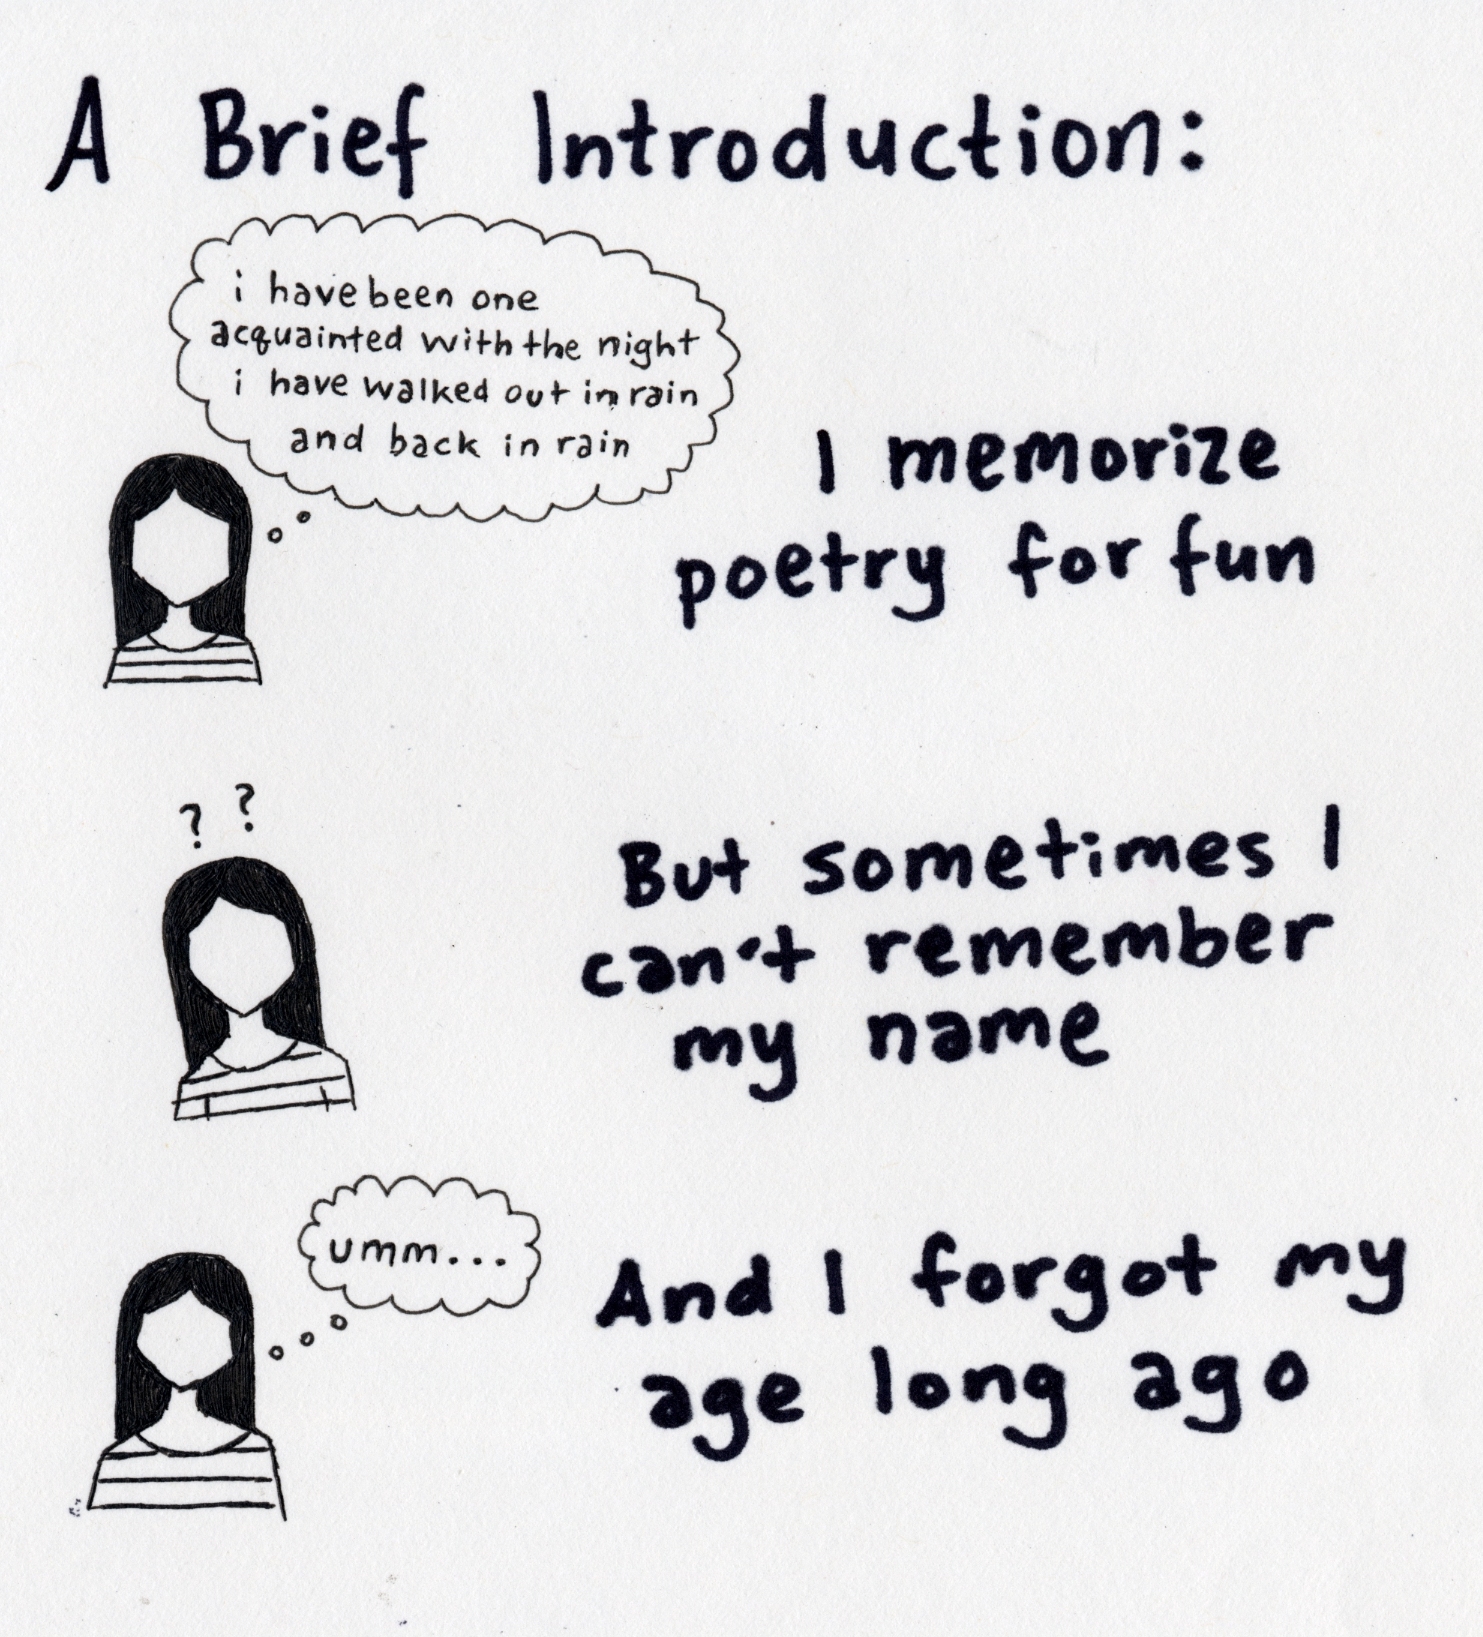 A Brief Introduction:
i have been one
acquainted with the night
i have walked out in rain
and back in rain
I memorize
poetry for fun
? ?
But sometimes I
can't remember
my name
umm...
And I forgot my
age long ago